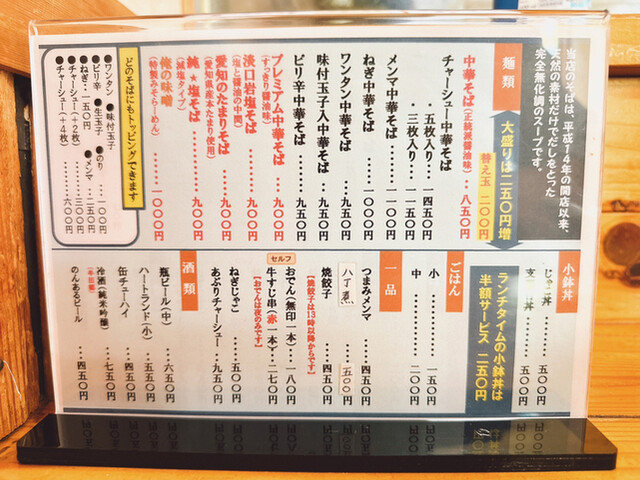 当店のそばは、平成14年の開店以来、
天然の素材だけでだしをとった
完全無化調のスープです。
麺類
大盛りは二五〇円増
替え玉 二〇〇円
中華そば(正統派醤油味)‥八五〇円
チャーシュー中華そば
・五枚入り‥‥一四五〇円
・三枚入り‥‥一一五〇円
メンマ中華そば‥‥一〇〇〇円
ねぎ中華そば‥‥一〇〇〇円
ワンタン中華そば‥‥九五〇円
味付玉子入中華そば‥九五〇円
ピリ辛中華そば‥‥九五〇円
プレミアム中華そば‥九〇〇円
(すっきり醤油味)
淡口岩塩そば‥‥九〇〇円
(塩と醤油の中間)
愛知のたまりそば‥‥九〇〇円
(愛知県産本たまり使用)
純★塩そば‥‥九〇〇円
(減塩タイプ)
俺の味噌‥‥一〇〇〇円
(特製みそらーめん)
どのそばにもトッピングできます
●ワンタン ●味付玉子
●ピリ辛 ●生玉子 ●のり‥‥一〇〇円
●ねぎ‥一五〇円 ●メンマ‥二五〇円
●チャーシュー(+2枚)‥‥三〇〇円
●チャーシュー(+4枚)‥‥六〇〇円
小鉢丼
じゃこ丼‥‥五〇〇円
丼‥‥五〇〇円
ランチタイムの小鉢丼は
半額サービス 二五〇円
ごはん
小‥‥一五〇円
中‥‥二〇〇円
一品
つまみメンマ‥‥四五〇円
五〇〇円
焼餃子‥‥四五〇円
【焼餃子は13時以降からです】
セルフ
おでん(無印一本)‥一八〇円
牛すじ串(赤一本)‥二七〇円
【おでんは夜のみです】
ねぎじゃこ‥‥五〇〇円
あぶりチャーシュー‥九五〇円
酒類
瓶ビール(中)‥‥六五〇円
ハートランド(小)‥‥五五〇円
缶チューハイ‥‥四五〇円
冷酒(純米吟醸)‥‥七五〇円
のんあるビール‥‥四五〇円